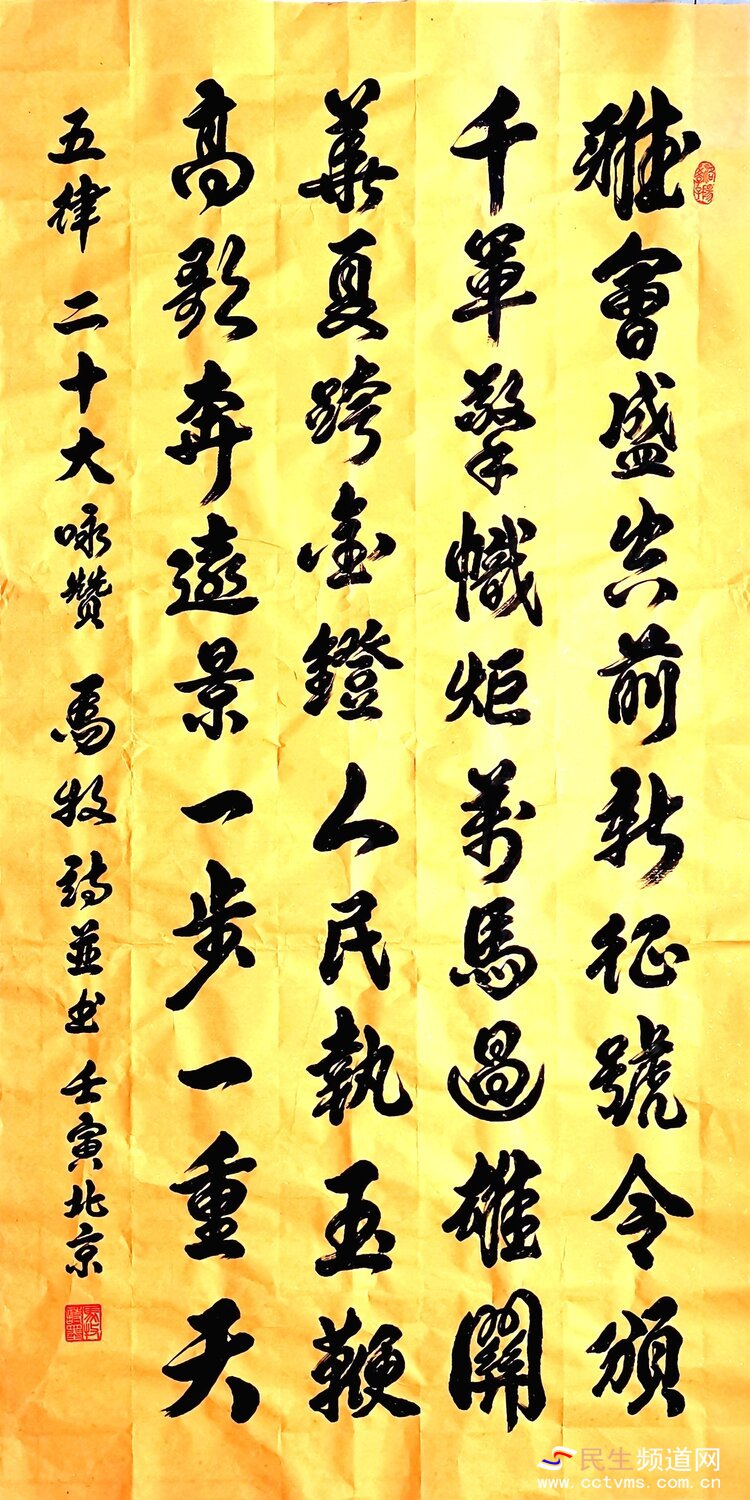 雅會盛空前新征號令頒
千軍擎幟炬萬馬過雄關
華夏跨金鐙人民執玉鞭
高歌奔遠景一步一重天
五律 二十大咏贊 馬牧詩並书 壬寅北京
民生频道网
www.cctvms.com.cn